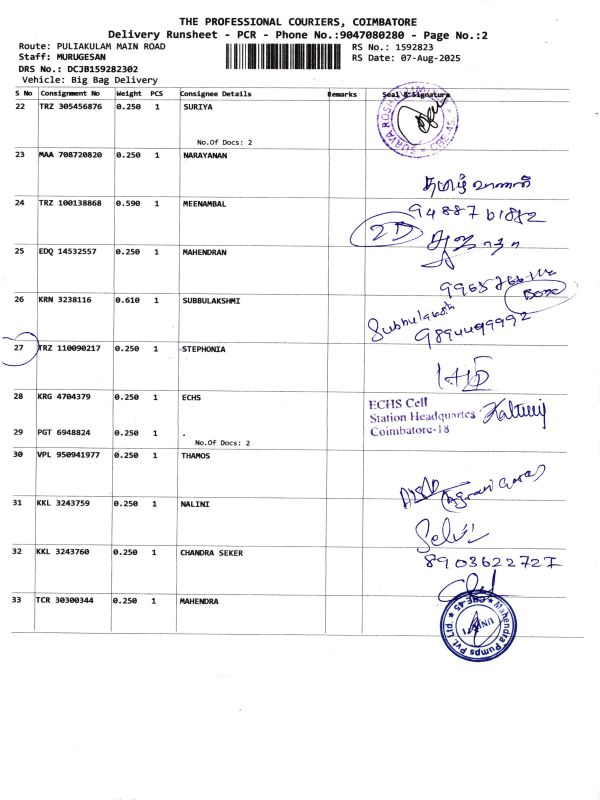 THE PROFESSIONAL COURIERS, COIMBATORE
Delivery Runsheet - PCR - Phone No.:9047080280 - Page No.:2
Route: PULIAKULAM MAIN ROAD
RS No.: 1592823
Staff: MURUGESAN
RS Date: 07-Aug-2025
DRS No.: DCJB159282302
Vehicle: Big Bag Delivery
S No Consignment No Weight PCS Consignee Details Remarks Seal & Signature
22 TRZ 305456876 0.250 1 SURIYA
No.Of Docs: 2
23 MAA 708720820 0.250 1 NARAYANAN
24 TRZ 100138868 0.590 1 MEENAMBAL
2D
25 EDQ 14532557 0.250 1 MAHENDRAN
26 KRN 3238116 0.610 1 SUBBULAKSHMI
Box
9894499992
27 TRZ 110090217 0.250 1 STEPHONIA
28 KRG 4704379 0.250 1 ECHS
ECHS Cell
Station Headquartes
Coimbatore-18
29 PGT 6948824 0.250 1 .
No.Of Docs: 2
30 VPL 950941977 0.250 1 THAMOS
31 KKL 3243759 0.250 1 NALINI
Selvi
32 KKL 3243760 0.250 1 CHANDRA SEKER
8903622727
33 TCR 30300344 0.250 1 MAHENDRA
Mahendra Pumps Pvt Ltd
CBE-45